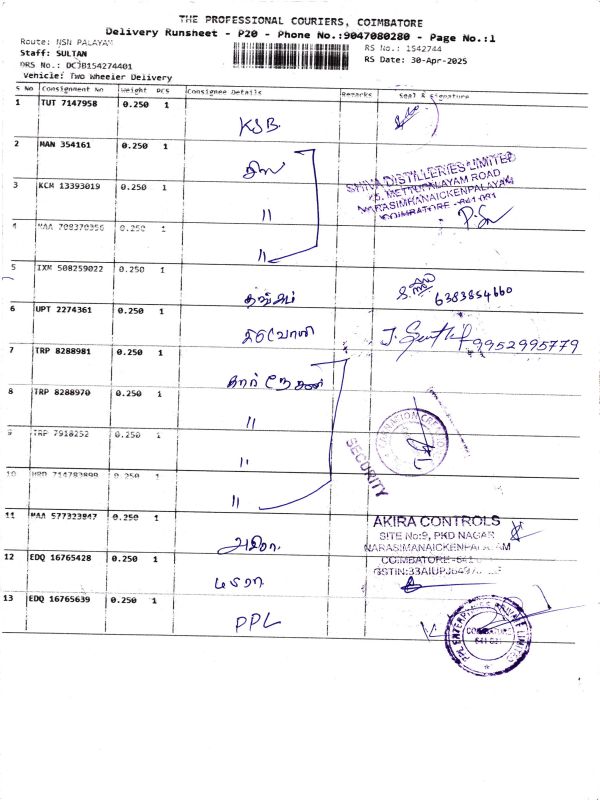 THE PROFESSIONAL COURIERS, COIMBATORE
Delivery Runsheet - P20 - Phone No.:9047080280 - Page No.:1
Route: NSN PALAYAM
RS No.: 1542744
Staff: SULTAN
DRS No.: DCJB154274401
RS Date: 30-Apr-2025
Vehicle: Two Wheeler Delivery
S No Consignment No Weight PCS Consignee Details Remarks Seal & Signature
1 TUT 7147958 0.250 1 KSB
2 MAN 354161 0.250 1
SHIVA DISTILLERIES LIMITED
METTUPALAYAM ROAD
NARASIMHANAICKENPALAYAM
COIMBATORE - 641 031
3 KCM 13393019 0.250 1 "
4 MAA 708370356 0.250 1 "
5 IXM 508259022 0.250 1 6383854660
6 UPT 2274361 0.250 1 9952995779
7 TRP 8288981 0.250 1
8 TRP 8288970 0.250 1 "
9 TRP 7918252 0.250 1 "
SECURITY
10 714783899 0.250 1 "
11 MAA 577323847 0.250 1
AKIRA CONTROLS
SITE No:9, PKD NAGAR
NARASIMANAICKENPALAYAM
COIMBATORE-641
12 EDQ 16765428 0.250 1
13 EDQ 16765639 0.250 1 PPL
PPL ENTERPRISES PRIVATE LIMITED
COIMBATORE